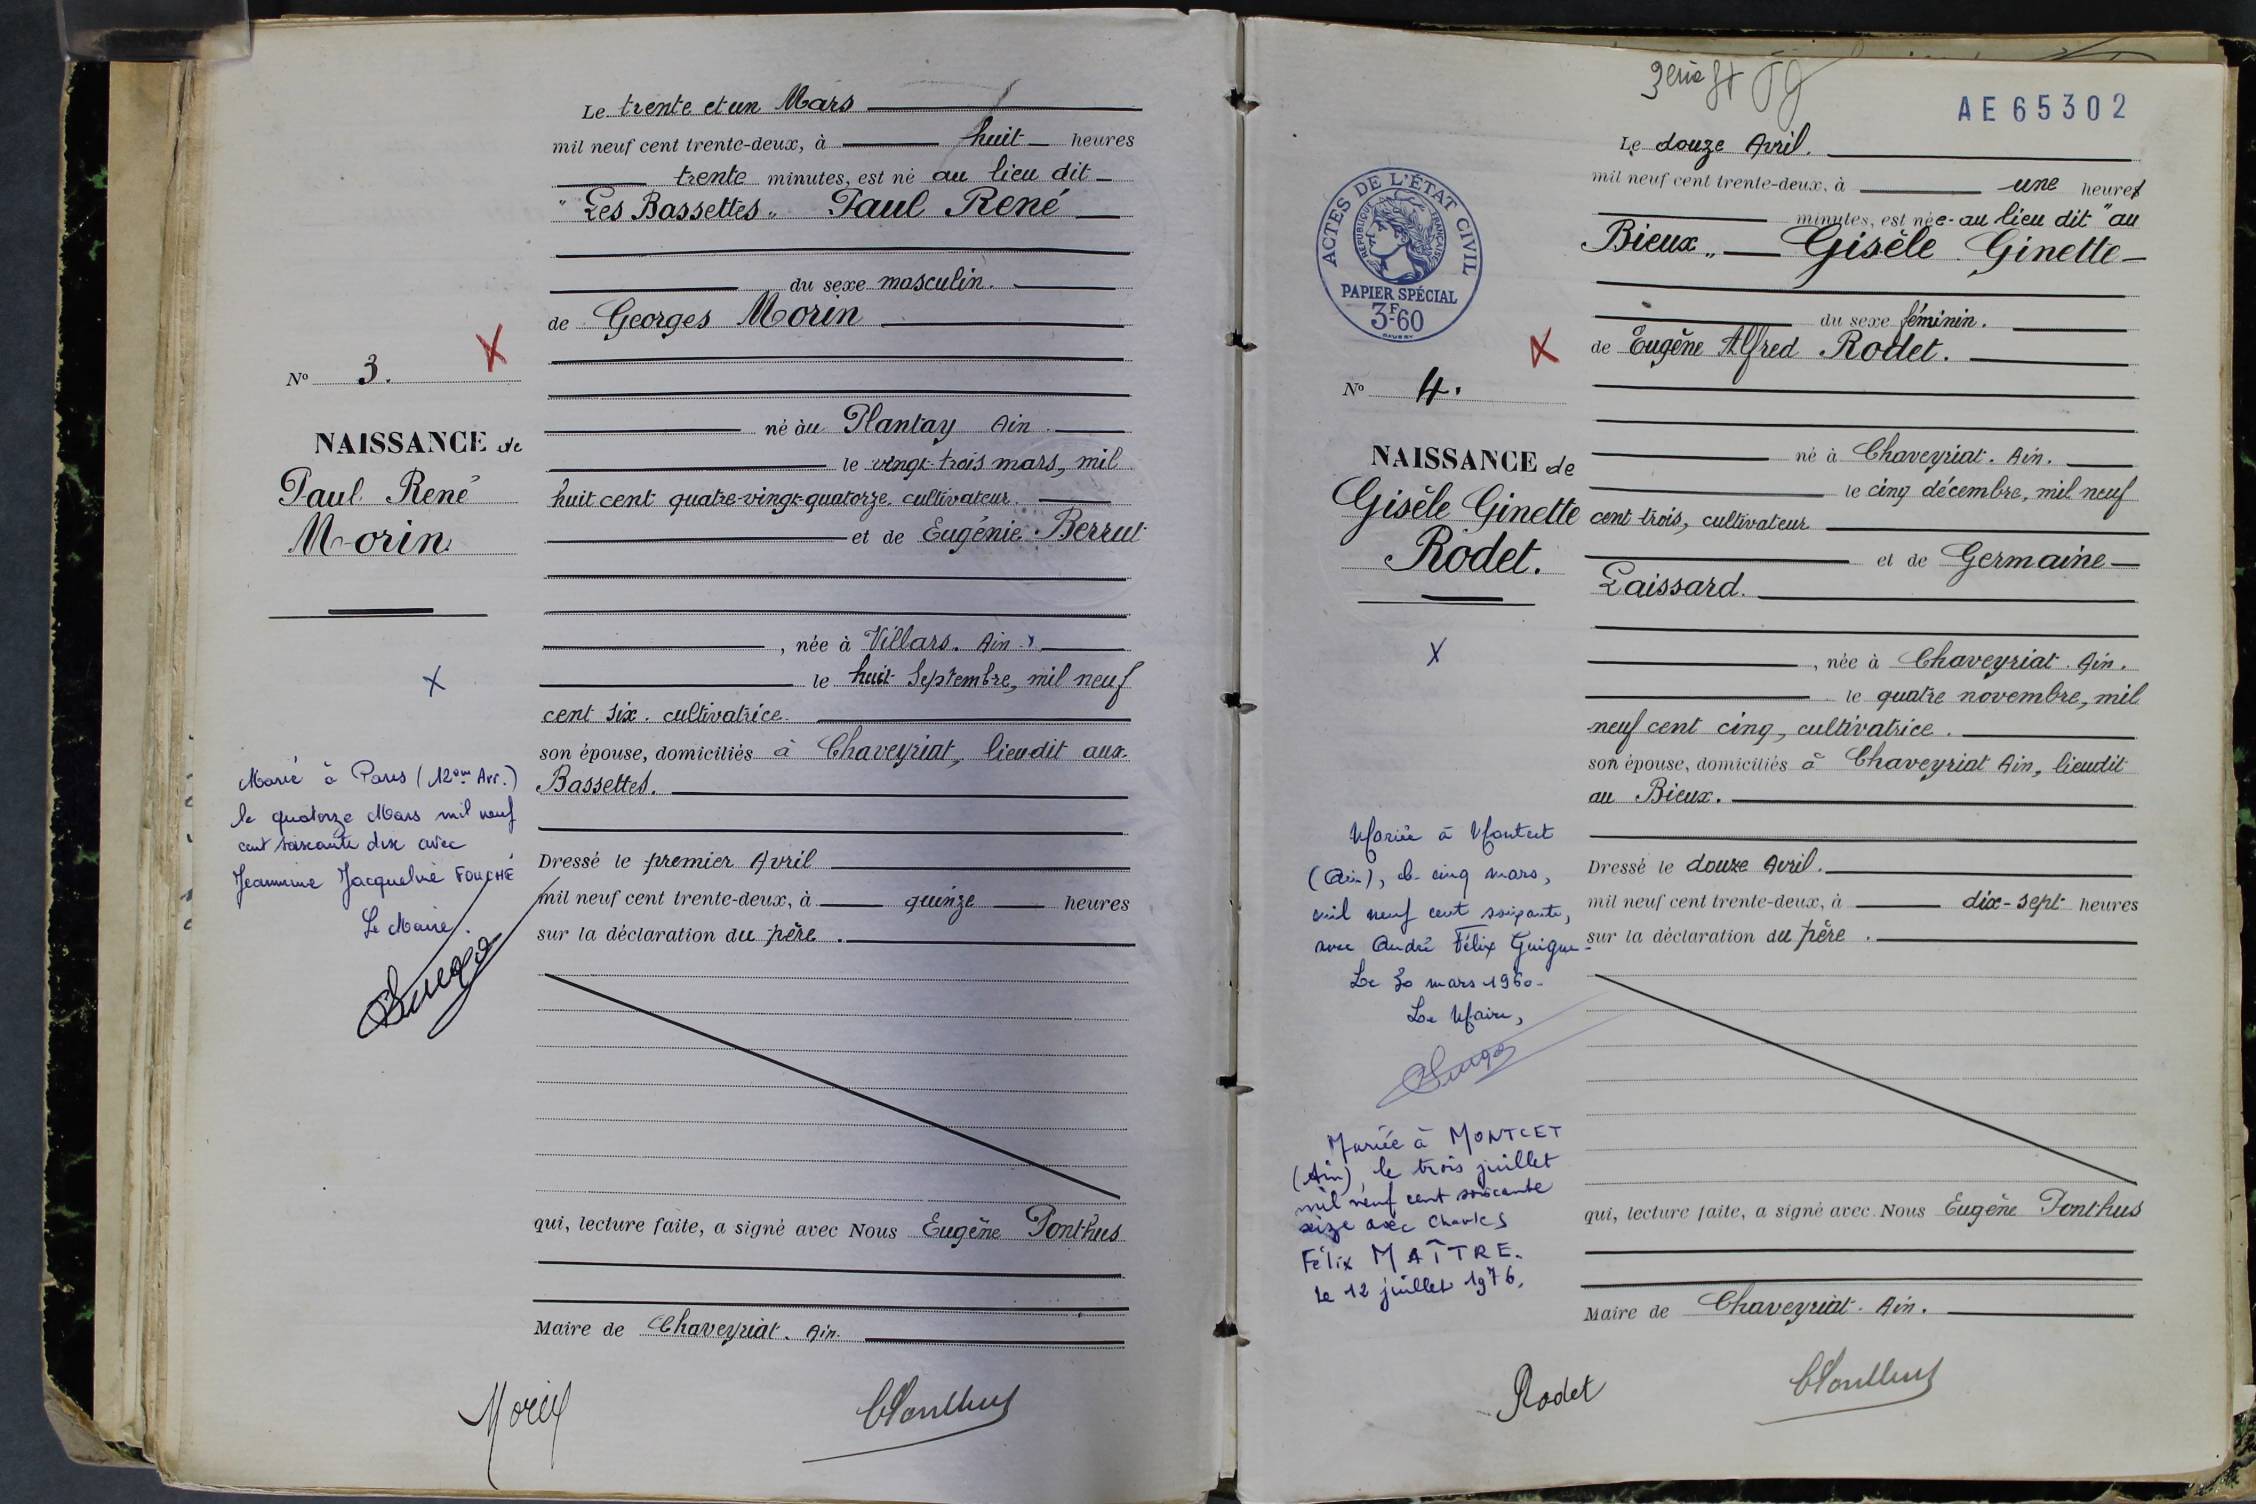 Le trente et un Mars
mil neuf cent trente-deux, à huit heures
trente minutes, est né au lieu dit
" Les Bassettes " Paul René
du sexe masculin.
de Georges Morin
né au Plantay Ain.
le vingt-trois mars, mil
huit cent quatre-vingt-quatorze, cultivateur.
et de Eugénie Berrut
, née à Villars. Ain.
le huit Septembre, mil neuf
cent six. cultivatrice.
son épouse, domiciliés à Chaveyriat, lieudit aux
Bassettes.
Dressé le premier Avril
mil neuf cent trente-deux, à quinze heures
sur la déclaration du père.
qui, lecture faite, a signé avec Nous Eugène Ponthus
Maire de Chaveyriat. Ain.
Morin
No 3.
NAISSANCE de
Paul René
Morin
X
X
Marié à Paris (12em Arr.)
le quatorze Mars mil neuf
cent soixante dix avec
Jeannine Jacqueline FOUCHÉ
Le Maire.
AE65302
Le douze Avril.
mil neuf cent trente-deux, à une heure
minutes, est née au lieu dit "au
Bieux" Gisèle Ginette
du sexe féminin.
de Eugène Alfred Rodet.
né à Chaveyriat. Ain.
le cinq décembre, mil neuf
cent trois, cultivateur
et de Germaine
Laissard.
, née à Chaveyriat. Ain.
le quatre novembre, mil
neuf cent cinq, cultivatrice.
son épouse, domiciliés à Chaveyriat Ain, lieudit
au Bieux.
Dressé le douze Avril.
mil neuf cent trente-deux, à dix-sept heures
sur la déclaration du père.
qui, lecture faite, a signé avec Nous Eugène Ponthus
Maire de Chaveyriat. Ain.
Rodet
ACTES DE L'ÉTAT CIVIL
RÉPUBLIQUE FRANÇAISE
PAPIER SPÉCIAL
3F-60
X
No 4.
NAISSANCE de
Gisèle Ginette
Rodet.
X
Mariée à Montcet
(Ain), le cinq mars,
mil neuf cent soixante,
avec André Félix Guigue
Le 30 mars 1960-
Le Maire,
Mariée à MONTCET
(Ain) le trois juillet
mil neuf cent soixante
seize avec Charles
Félix MAÎTRE.
Le 12 juillet 1976.